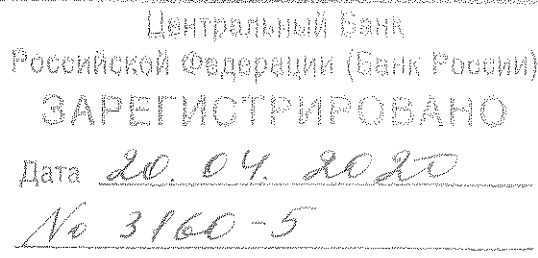 Центральный Банк
Российской Федерации (Банк России)
ЗАРЕГИСТРИРОВАНО
Дата 20. 04. 2020
№ 3160-5